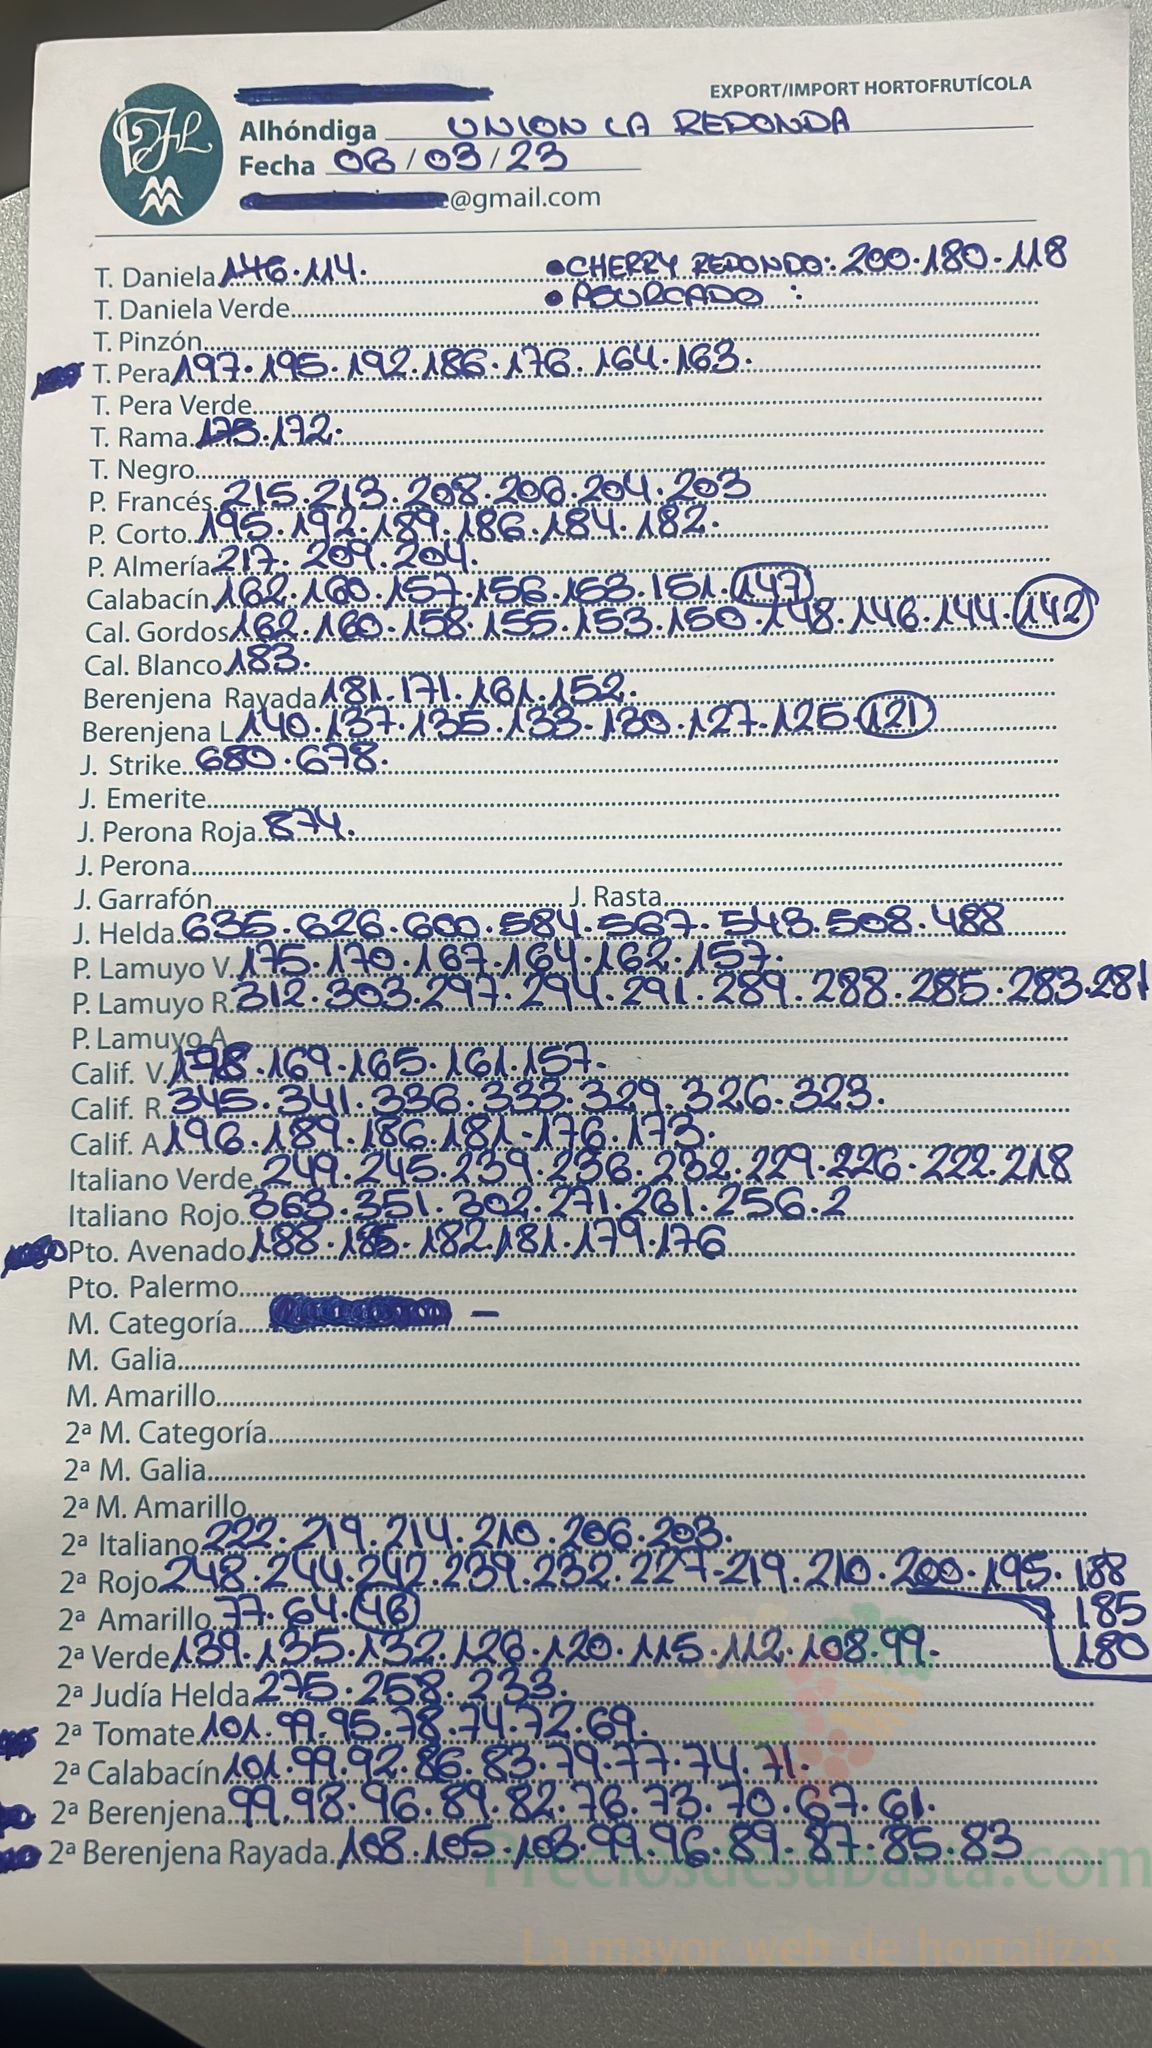 EXPORT/IMPORT HORTOFRUTÍCOLA
Alhóndiga UNION LA REDONDA
Fecha 06/03/23
@gmail.com
T. Daniela 146.114. •CHERRY REDONDO: 200.180.118
T. Daniela Verde • ASURCADO :
T. Pinzón
T. Pera 197.195.192.186.176.164.163.
T. Pera Verde
T. Rama 175.172.
T. Negro
P. Francés 215.213.208.206.204.203
P. Corto 195.192.189.186.184.182.
P. Almería 217.209.204.
Calabacín 162.160.157.156.153.151.147
Cal. Gordos 162.160.158.155.153.150.148.146.144.142
Cal. Blanco 183.
Berenjena Rayada 181.171.161.152.
Berenjena L 140.137.135.133.130.127.125.121
J. Strike 680.678.
J. Emerite
J. Perona Roja 874.
J. Perona
J. Garrafón J. Rasta
J. Helda 635.626.600.584.567.543.508.488
P. Lamuyo V. 175.170.167.164.162.157.
P. Lamuyo R. 312.303.297.294.291.289.288.285.283.281
P. Lamuyo A
Calif. V. 169.165.161.157.
Calif. R. 345.341.336.333.329.326.323.
Calif. A 196.189.186.181.176.173.
Italiano Verde 249.245.239.236.232.229.226.222.218
Italiano Rojo 363.351.302.271.261.256.2
Pto. Avenado 188.185.182.181.179.176
Pto. Palermo
M. Categoría –
M. Galia
M. Amarillo
2ª M. Categoría
2ª M. Galia
2ª M. Amarillo
2ª Italiano 222.219.214.210.206.203.
2ª Rojo 248.244.242.239.232.227.219.210.200.195.188
2ª Amarillo 77.64.46 185
2ª Verde 139.135.132.126.120.115.112.108.99. 180
2ª Judía Helda 275.258.233.
2ª Tomate 101.99.95.78.74.72.69.
2ª Calabacín 101.99.92.86.83.79.77.74.71.
2ª Berenjena 99.98.96.89.82.76.73.70.67.61.
2ª Berenjena Rayada 108.105.103.99.96.89.87.85.83
Preciosdesubasta.com
La mayor web de hortalizas